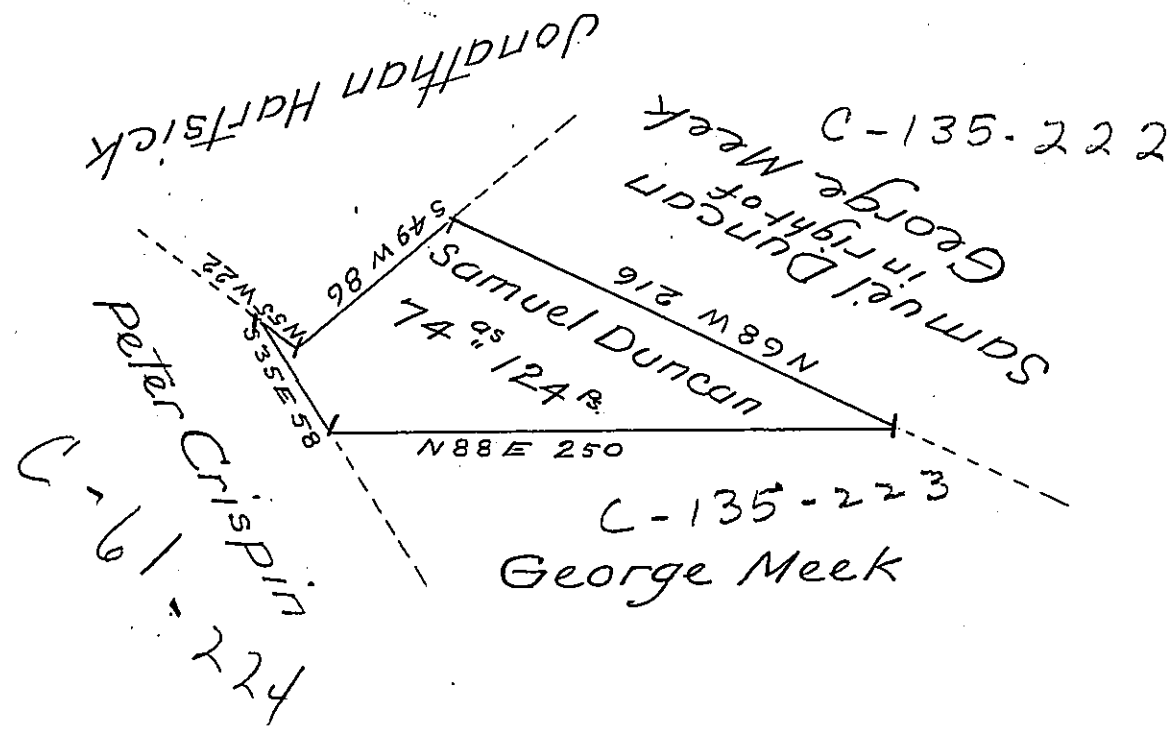 Jonathan Hartsick
C-135-222
Samuel Duncan
in right of
George Meek
S 49 W 86
N 68 W 216
N55 W22
S35E 58
N88E 250
Samuel Duncan
74 as " 124 Ps.
Peter Crispin
C-61-224
C-135-223
George Meek